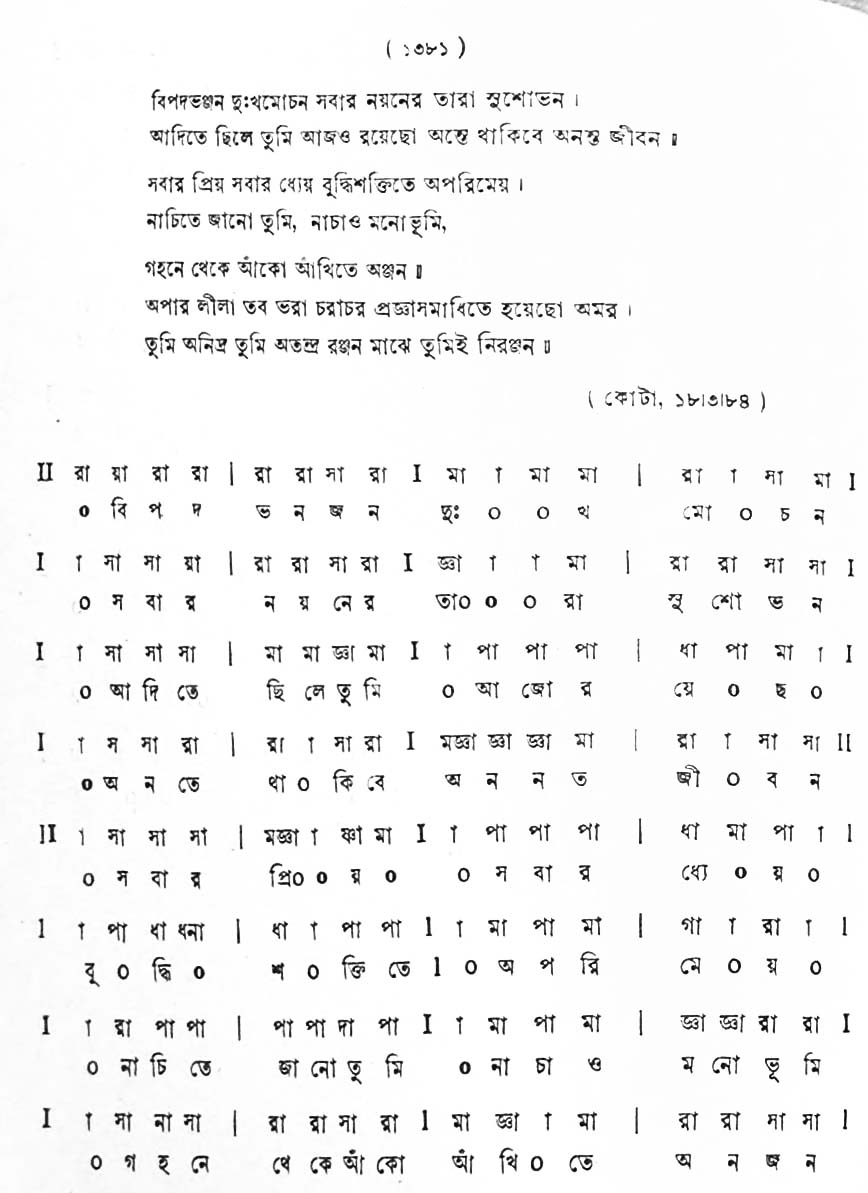 ( ১৩৮১ )
বিপদভঞ্জন দুঃখমোচন সবার নয়নের তারা সুশোভন ।
আদিতে ছিলে তুমি আজও রয়েছো অন্তে থাকিবে অনন্ত জীবন ॥
সবার প্রিয় সবার ধ্যেয় বুদ্ধিশক্তিতে অপরিমেয় ।
নাচিতে জানো তুমি, নাচাও মনোভূমি,
গহনে থেকে আঁকো আঁখিতে অঞ্জন ॥
অপার লীলা তব ভরা চরাচর প্রজ্ঞাসমাধিতে হয়েছো অমর ।
তুমি অনিদ্র তুমি অতন্দ্র রঞ্জন মাঝে তুমিই নিরঞ্জন ॥
( কোটা, ১৮।৩।৮৪ )
II রা য়া রা রা | রা রা সা রা I মা া মা মা | রা া সা মা I
০ বি প দ ভ ন জ ন দুঃ ০ ০ খ মো ০ চ ন
I া সা সা য়া | রা রা সা রা I জ্ঞা া া মা | রা রা সা সা I
০ স বা র ন য় নে র তা০ ০ ০ রা সু শো ভ ন
I া সা সা সা | মা মা জ্ঞা মা I া পা পা পা | ধা পা মা া I
০ আ দি তে ছি লে তু মি ০ আ জো র য়ে ০ ছ ০
I া স সা রা | রা া সা রা I মজ্ঞা জ্ঞা জ্ঞা মা | রা া সা সা II
০ অ ন তে থা ০ কি বে অ ন ন ত জী ০ ব ন
II া সা সা সা | মজ্ঞা া ক্ষা মা I া পা পা পা | ধা মা পা া l
০ স বা র প্রি০ ০ য় ০ ০ স বা র ধ্যে ০ য় ০
l া পা ধা ধনা | ধা া পা পা l া মা পা মা | গা া রা া l
বূ ০ দ্ধি ০ শ ০ ক্তি তে l ০ অ প রি মে ০ য় ০
I া রা পা পা | পা পা দা পা I া মা পা মা | জ্ঞা জ্ঞা রা রা I
০ না চি তে জা নো তু মি ০ না চা ও ম নো ভূ মি
I া সা না সা | রা রা সা রা l মা জ্ঞা া মা | রা রা সা সা l
০ গ হ নে থে কে আঁ কো আঁ খি ০ তে অ ন জ ন